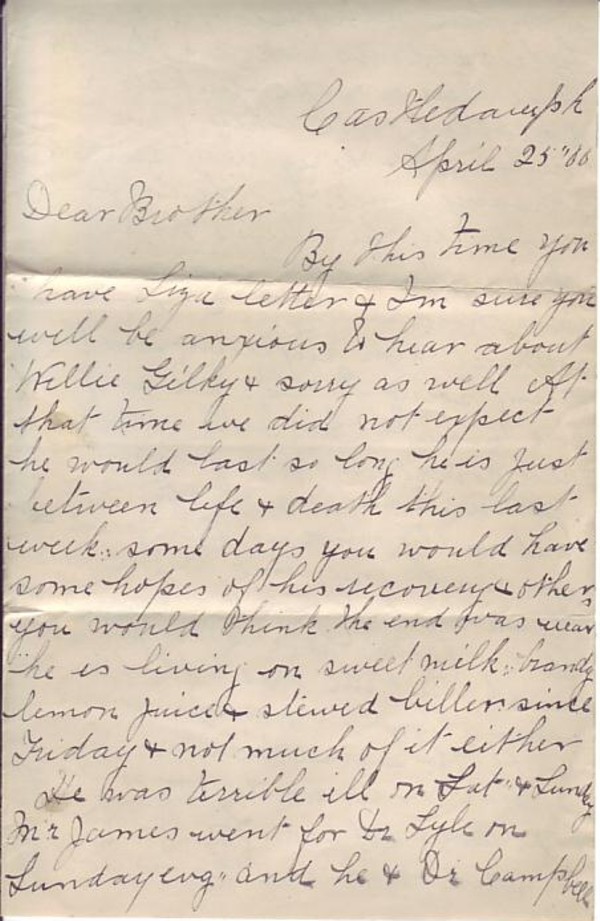 Castledamph
April 25"
Dear Brother
By this time you
have Liza letter & Im sure you
will be anxious to hear about
Willie Gilky & sorry as well At
that time we did not expect
he would last so long he is just
between life & death this last
week. some days you would have
some hopes of his recovery & others
you would think the end was near
he is living on sweet milk, brandy
lemon juice & stewed since
Friday & not much of it either
He was terrible ill on Sat" & Sunday
Mr James went for Dr Lyle on
Sunday evg" and he & Dr Campbell